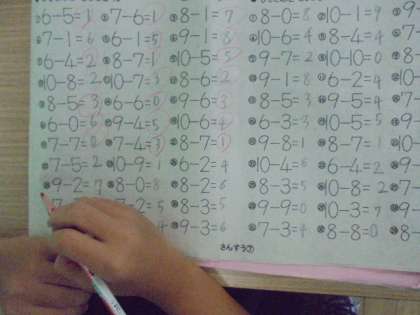 6-5=1 7-6=1 8-1=7 8-0=8 10-1=9
7-1=6 6-1=5 9-1=8 10-6=4 8-4=4
6-4=2 8-7=1 10-5=5 9-7=2 10-10=0
10-8=2 7-3=4 8-6=2 9-1=8 6-2=4
8-5=3 6-6=0 9-6=3 8-5=3 9-5=4
6-0=6 9-4=5 10-6=4 6-3=3 10-5=5
7-7=0 7-4=3 8-7=1 9-8=1 8-7=1
7-5=2 10-9=1 6-2=4 10-4=6 6-4=2
9-2=7 8-0=8 8-2=6 8-3=5 10-8=2
7-2=5 8-3=5 9-9=0 10-3=7
9-3=6 7-3=4 8-8=0
さんすう⑦